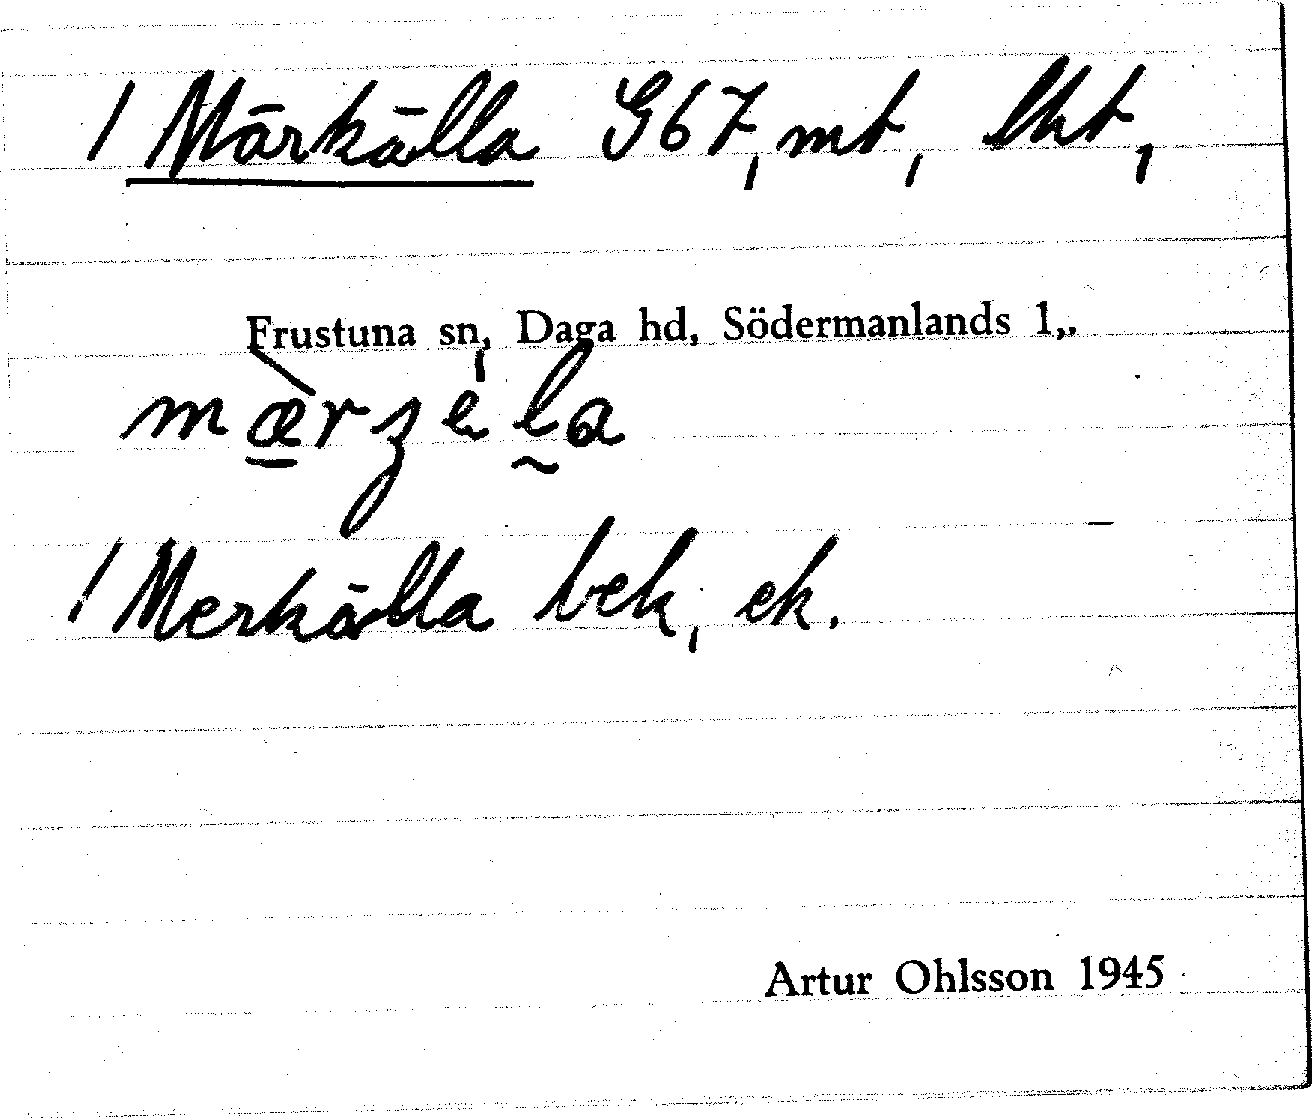 / Märkälla G67, mt, lht,
Frustuna sn, Daga hd, Södermanlands l,.
mæ̀rzela
/ Merkälla bek, ek.
Artur Ohlsson 1945